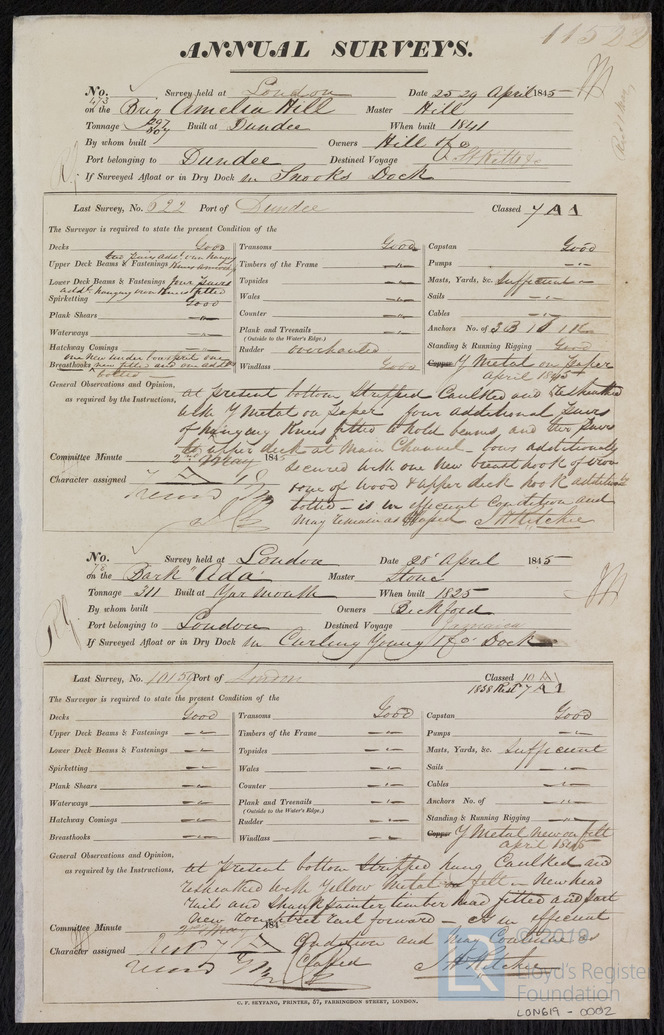 11522
ANNUAL SURVEYS.
No. 473 Survey held at London Date 25 29 April 1845
on the Brig Amelia Hill Master Hill
Tonnage 207 Built at Dundee When built 1841
By whom built Owners Hill & Co
Port belonging to Dundee Destined Voyage St Kitts &c
If Surveyed Afloat or in Dry Dock in Snooks Dock
Last Survey, No. 522 Port of Dundee Classed 7 A 1
The Surveyor is required to state the present Condition of the
Decks Good Transoms Good Capstan Good
Upper Deck Beams & Fastenings two pairs addl iron hanging Knees Timbers of the Frame " Pumps "
Lower Deck Beams & Fastenings four pairs addl hanging iron Knees fitted Topsides " Masts, Yards, &c. Sufficient
Spirketting Good Wales " Sails "
Plank Shears " Counter " Cables "
Waterways " Plank and Treenails " Anchors No. of 3 B 1 S 1 K
(Outside to the Water's Edge.)
Hatchway Comings " Rudder overhauled Standing & Running Rigging Good
Breasthooks one new under bowsprit one new fitted and one addl bolted Windlass Good Copper Y Metal on Paper
April 1845
General Observations and Opinion,
as required by the Instructions,
at present bottom Stripped Caulked and resheathed
with Y Metal on Paper four additional pairs
of hanging Knees fitted to hold beams, and two pairs
to upper deck at Main Channel – bows additionally
secured with one new breasthook of iron
one of wood & upper deck hook additionally
bolted – is in efficient Condition and
may remain as Classed J H Ritchie
Committee Minute 2nd May 1845
Character assigned 7 A 1
No. 78 Survey held at London Date 28 April 1845
on the Bark "Ada" Master Stone
Tonnage 311 Built at Yarmouth When built 1825
By whom built Owners Beckford
Port belonging to London Destined Voyage Jamaica
If Surveyed Afloat or in Dry Dock in Curling Young & Co Dock
Last Survey, No. 10159 Port of London Classed 10 A
1838 Rest 7 A 1
The Surveyor is required to state the present Condition of the
Decks Good Transoms Good Capstan Good
Upper Deck Beams & Fastenings " Timbers of the Frame " Pumps "
Lower Deck Beams & Fastenings " Topsides " Masts, Yards, &c. Sufficient
Spirketting " Wales " Sails "
Plank Shears " Counter " Cables "
Waterways " Plank and Treenails " Anchors No. of "
(Outside to the Water's Edge.)
Hatchway Comings " Rudder " Standing & Running Rigging "
Breasthooks " Windlass " Copper Y Metal new on felt
April 1845
General Observations and Opinion,
as required by the Instructions,
at Present bottom Stripped hung Caulked and
resheathed with Yellow Metal on felt – New head
rails and Shank painter timber head fitted and part
New rail forward – is in efficient
Condition and may Continue as
Classed J H Ritchie
Committee Minute 2nd May 184
Character assigned Rest 7 A
C. F. SEYFANG, PRINTER, 57, FARRINGDON STREET, LONDON.
LR © 2019
Lloyd's Register
Foundation
LON619 - 0002